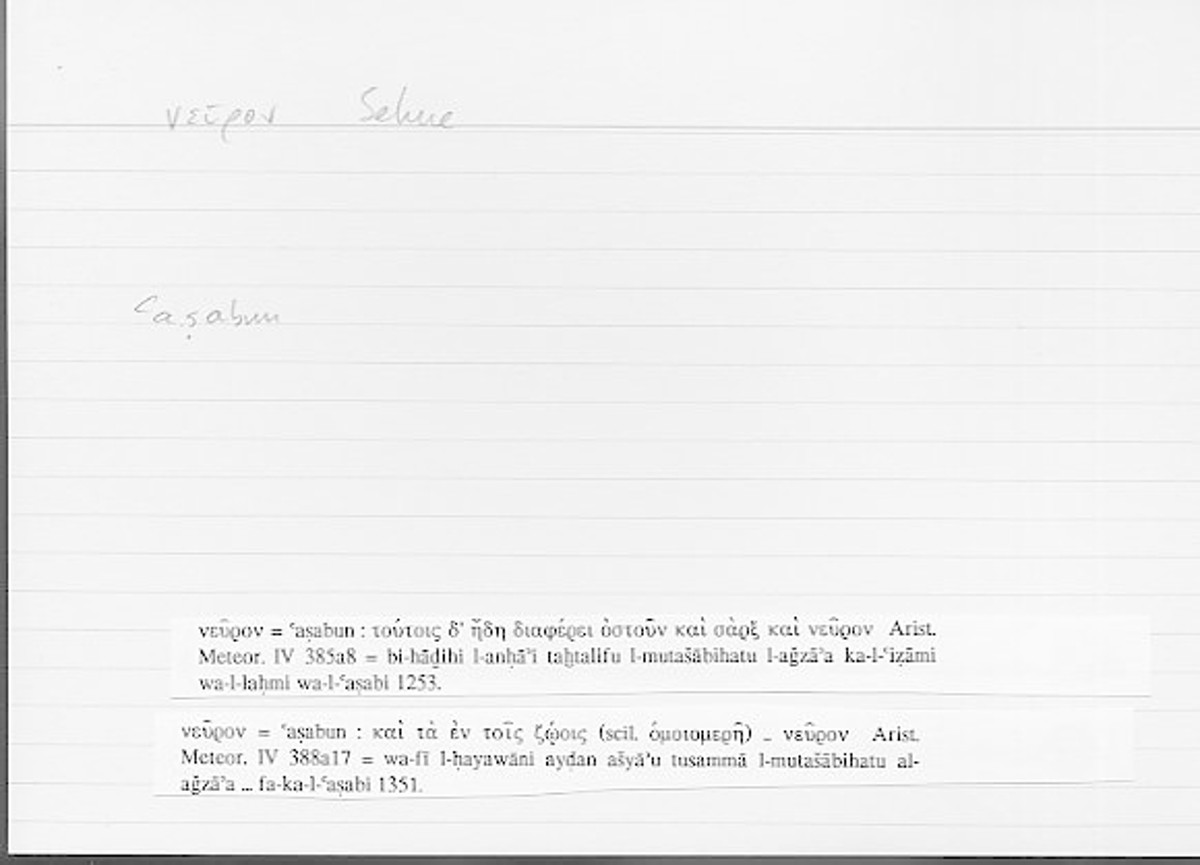 νεῦρον Sehne
ʿaṣabun
νεῦρον = ʿaṣabun : τούτοις δ' ἤδη διαφέρει ὀστοῦν καὶ σὰρξ καὶ νεῦρον Arist.
Meteor. IV 385a8 = bi-hāḏihi l-anḥāʾi taḫtalifu l-mutašābihatu l-aǧzāʾa ka-l-ʿiẓāmi
wa-l-laḥmi wa-l-ʿaṣabi 1253.
νεῦρον = ʿaṣabun : καὶ τὰ ἐν τοῖς ζῴοις (scil. ὁμοιομερῆ) ... νεῦρον Arist.
Meteor. IV 388a17 = wa-fī l-ḥayawāni ayḍan ašyāʾu tusammā l-mutašābihatu al-
aǧzāʾa ... fa-ka-l-ʿaṣabi 1351.